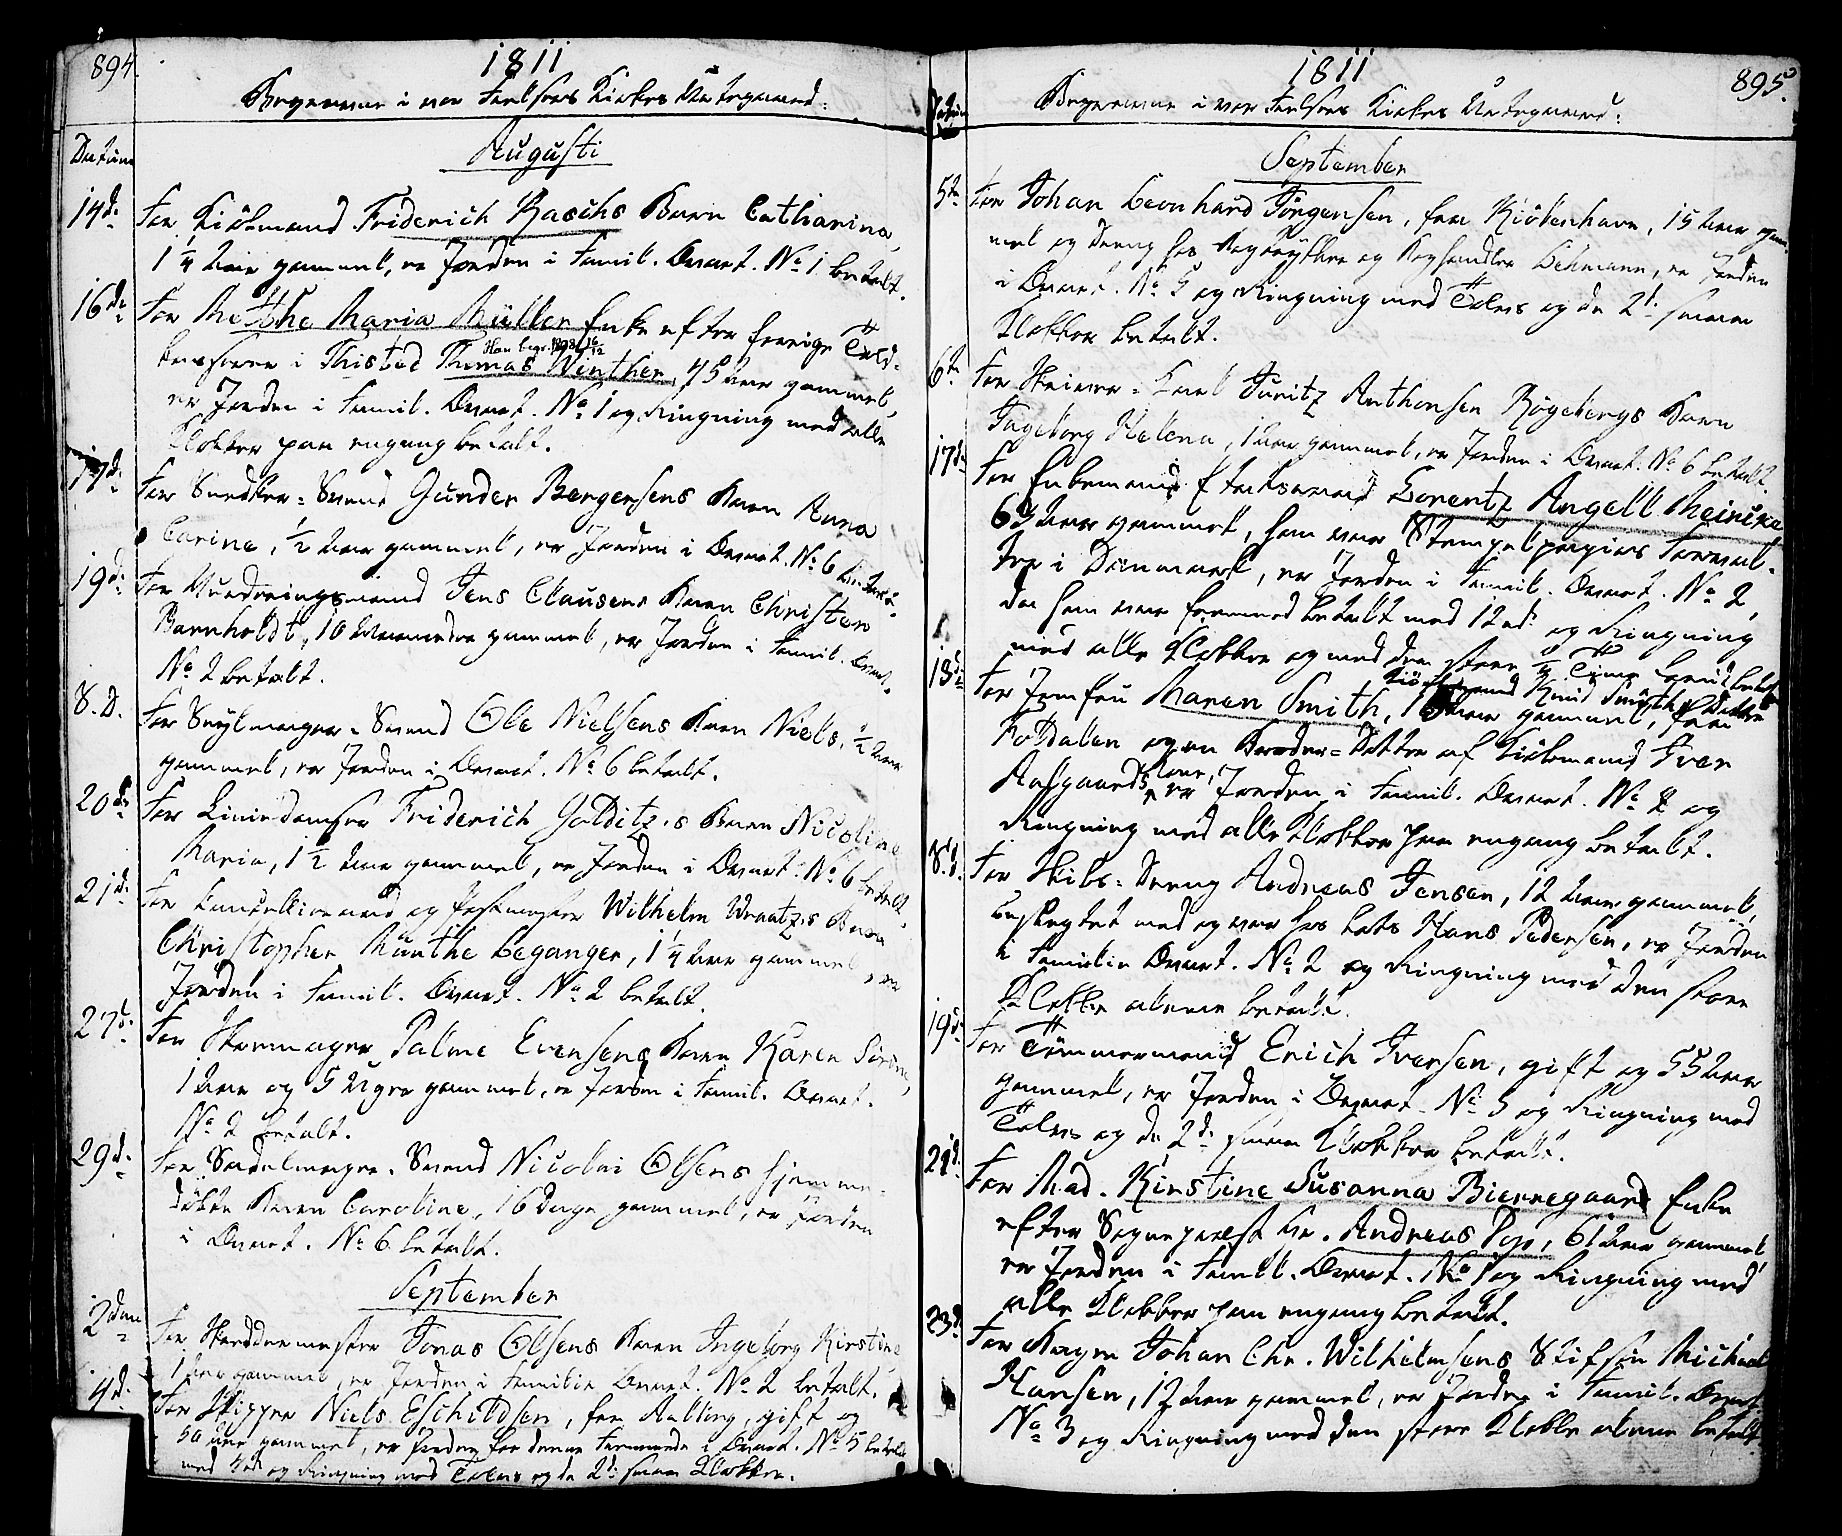 894.
1811
Begravne i vor Frelsers Kirkes Urtegaard:
Datum
Augusti
14d: For Kiöbmand Friderich Raschs Barn Catharina,
1 1/4 Aar gammel, er Jorden i Famil. Qvart. No 1 betalt.
16d: For Methe Maria Müller Enke efter forrige Told-
Han begr. 16/12
i Thisted Thomas Winther, 75 Aar gammel,
er Jorden i Famil. Qvart. No 1 og Ringning med alle
Klokker paa engang betalt.
17d: For Snedker-Svend Gunder Bergersens Barn Anna
Carine, 1/2 Aar gammel, er Jorden i Qvart. No 6 betalt.
19d: For Jens Clausens Barn Christen
Barnholdt, 10 Maaneder gammel, er Jorden i Famil. Qvart.
No 2 betalt.
S. D. For Seylmager-Svend Ole Nielsens Barn Niels, 1/2 Aar
gammel, er Jorden i Qvart. No 6 betalt.
20d: For Friderich Golditz's Barn Nicoline
Maria, 1 1/2 Aar gammel, er Jorden i Qvart. No 6 betalt.
21d: For Cancellieraad og Postmester Wilhelm Wraatz's Barn
Christopher Munthe Leganger, 1 1/4 Aar gammel, er
Jorden i Famil. Qvart. No 2 betalt.
27d: For Skomager Palme Evensens Barn Karen Sirine,
1 Aar og 5 Uger gammel, er Jorden i Famil. Qvart.
No 2 betalt.
29d: For Sadelmager-Svend Nicolai Olsens hjemme-
döbte Barn Caroline, 16 Dage gammel, er Jorden
i Qvart. No 6 betalt.
September
2den For Skreddermester Jonas Olsens Barn Ingeborg Kirstine
1 Aar gammel, er Jorden i Familie Qvart. No 2 betalt.
4d: For Skipper Niels Eschildsen, fra Aalborg, gift og
50 Aar gammel, er Jorden for denne Fremmede i Qvart. No 5 betalt
med 4 rd og Ringning med Tolvs og de 2d: smaa Klokker.
895.
1811
Begravne i vor Frelsers Kirkes Urtegaard:
Datum
September
5te For Johan Leonhard Jörgensen, fra Kiöbenhavn, 15 Aar gam-
mel og Dreng hos Bogtrykker og Boghandler Lehmann, er Jorden
i Qvart. No 5 og Ringning med Tolvs og de 2d: smaa
Klokker betalt.
6te For Juritz Anthonsen Rögebergs Barn
Ingeborg Helena, 1 Aar gammel, er Jorden i Qvart. No 6 betalt.
17de For Enkemand Etatsraad Lorentz Angell Meincke
63 Aar gammel, som var Stempelpapiirs Forval-
ter i Danmark, er Jorden i Famil. Qvart. No 2,
da han var fremmed betalt med 12 rd: og Ringning
med alle Klokker og med den store 1/4 Time betalt
18d: For Jomfru Maren Smith, 16 Aar gammel, Kiöbmand Knud Smiths Datter fra
Foldalen og en Broder-Datter af Kiöbmand Iver
Aasgaards Kone, er Jorden i Famil. Qvart. No 2 og
Ringning med alle Klokker paa engang betalt.
S. d. For Skibs-Dreng Andreas Jensen, 12 Aar gammel,
beslegtet med og var hos Lods Hans Pedersen, er Jorden
i Familie Qvart. No 2 og Ringning med den store
Klokke alene betalt.
19d: For Tömmermand Erich Iversen, gift og 55 Aar
gammel, er Jorden i Qvart. No 5 og Ringning med
Tolvs og de 2d: smaa Klokker betalt.
21d: For Mad. Kirstine Susanna Bierregaard Enke
efter Sognepræst Hr. Andreas Pop, 61 Aar gammel
er Jorden i Famil. Qvart. No 1 og Ringning med
alle Klokker paa engang betalt.
23d: For Bager Johan Chr. Wilhelmsens Stifsön Michael
Hansen, 12 Aar gammel, er Jorden i Famil. Qvart
No 3 og Ringning med den store Klokke alene betalt